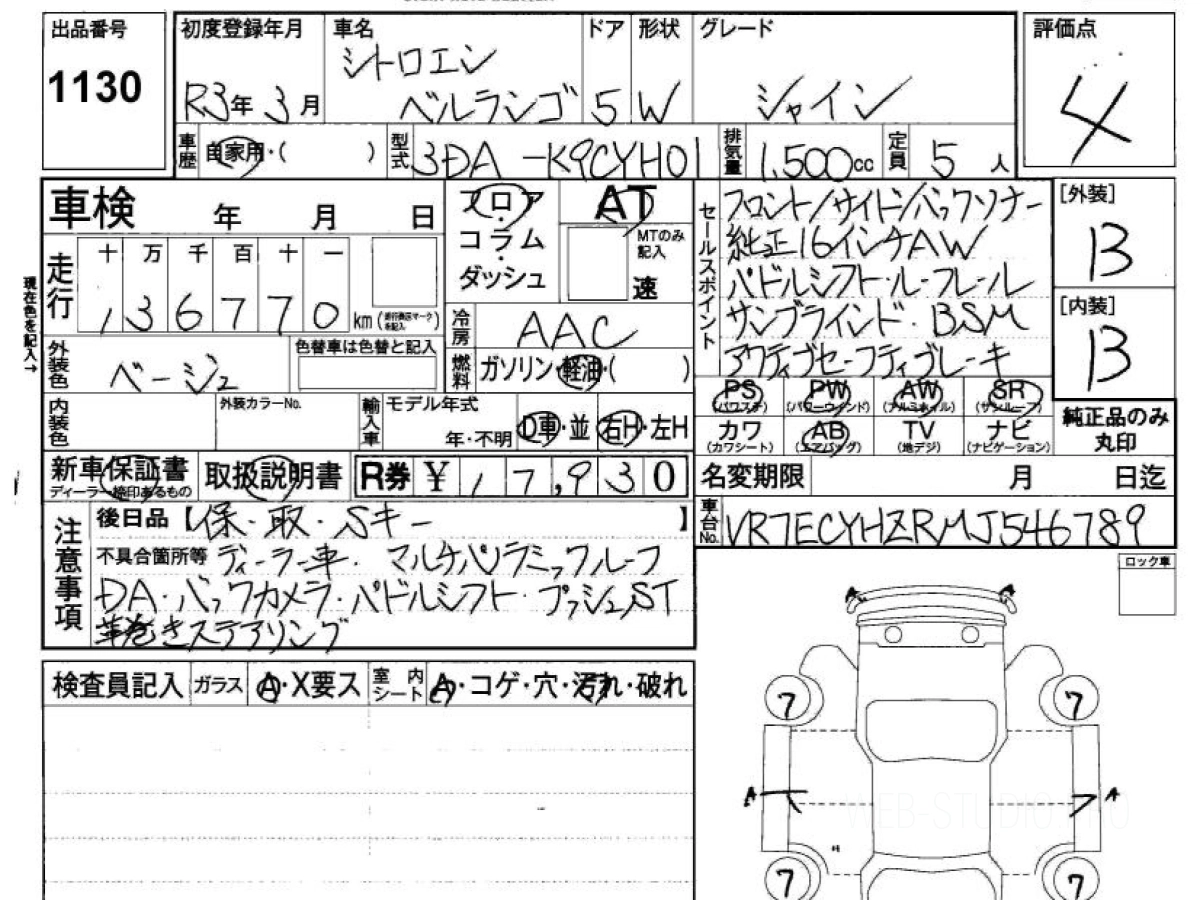 出品番号
1130
初度登録年月
R3年 3月
車名
シトロエン
ベルランゴ
ドア
5
形状
W
グレード
シャイン
評価点
4
車歴
自家用・( )
型式
3DA-K9CYH01
排気量
1,500cc
定員
5人
車検 年 月 日
フロア
・
コラム
・
ダッシュ
AT
MTのみ
記入
速
セールスポイント
フロント/サイド/バックソナー
純正16インチAW
パドルシフト・ルーフレール
サンブラインド・BSM
アクティブセーフティブレーキ
[外装]
B
[内装]
B
現在色を記入→
走行
十 万 千 百 十 一
, 3 6 7 7 0 km
冷房
AAC
外装色
ベージュ
色替車は色替と記入
燃料
ガソリン・軽油・( )
内装色
外装カラーNo.
輸入車
モデル年式
年・不明
D車・並
右H・左H
PS
(パワステ)
PW
(パワーウインド)
AW
(アルミホイル)
SR
(サンルーフ)
カワ
(カワシート)
AB
(エアバッグ)
TV
(地デジ)
ナビ
(ナビゲーション)
純正品のみ
丸印
新車保証書
取扱説明書
R券 ¥ 17,930
名変期限 月 日迄
車台No.
VR7ECYHZRMJ546789
注意事項
後日品【保・取・Sキー 】
不具合箇所等 ディーラー車・マルチパノラミックルーフ
DA・バックカメラ・パドルシフト・プッシュST
革巻きステアリング
ロック車
検査員記入
ガラス
A・X要ス
室内
シート
A・コゲ・穴・汚れ・破れ
A
A
7
7
A
A
WEB-STUDIO.PRO
7
7